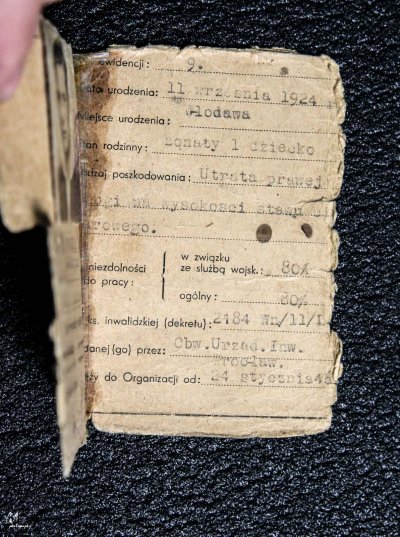 ewidencji: 9.
Data urodzenia: 11 września 1924 r
Miejsce urodzenia: Włodawa
tan rodzinny: żonaty 1 dziecko
dzaj poszkodowania: Utrata prawej
nogi na wysokości staw
drowego.
niezdolności do pracy:
w związku ze służbą wojsk.: 80%
ogólny: 80%
ks. inwalidzkiej (dekretu): 2184 Wn/11/L
danej (go) przez: Obw.Urząd.Inw.
Wrocław.
eży do Organizacji od: 24 stycznia 48